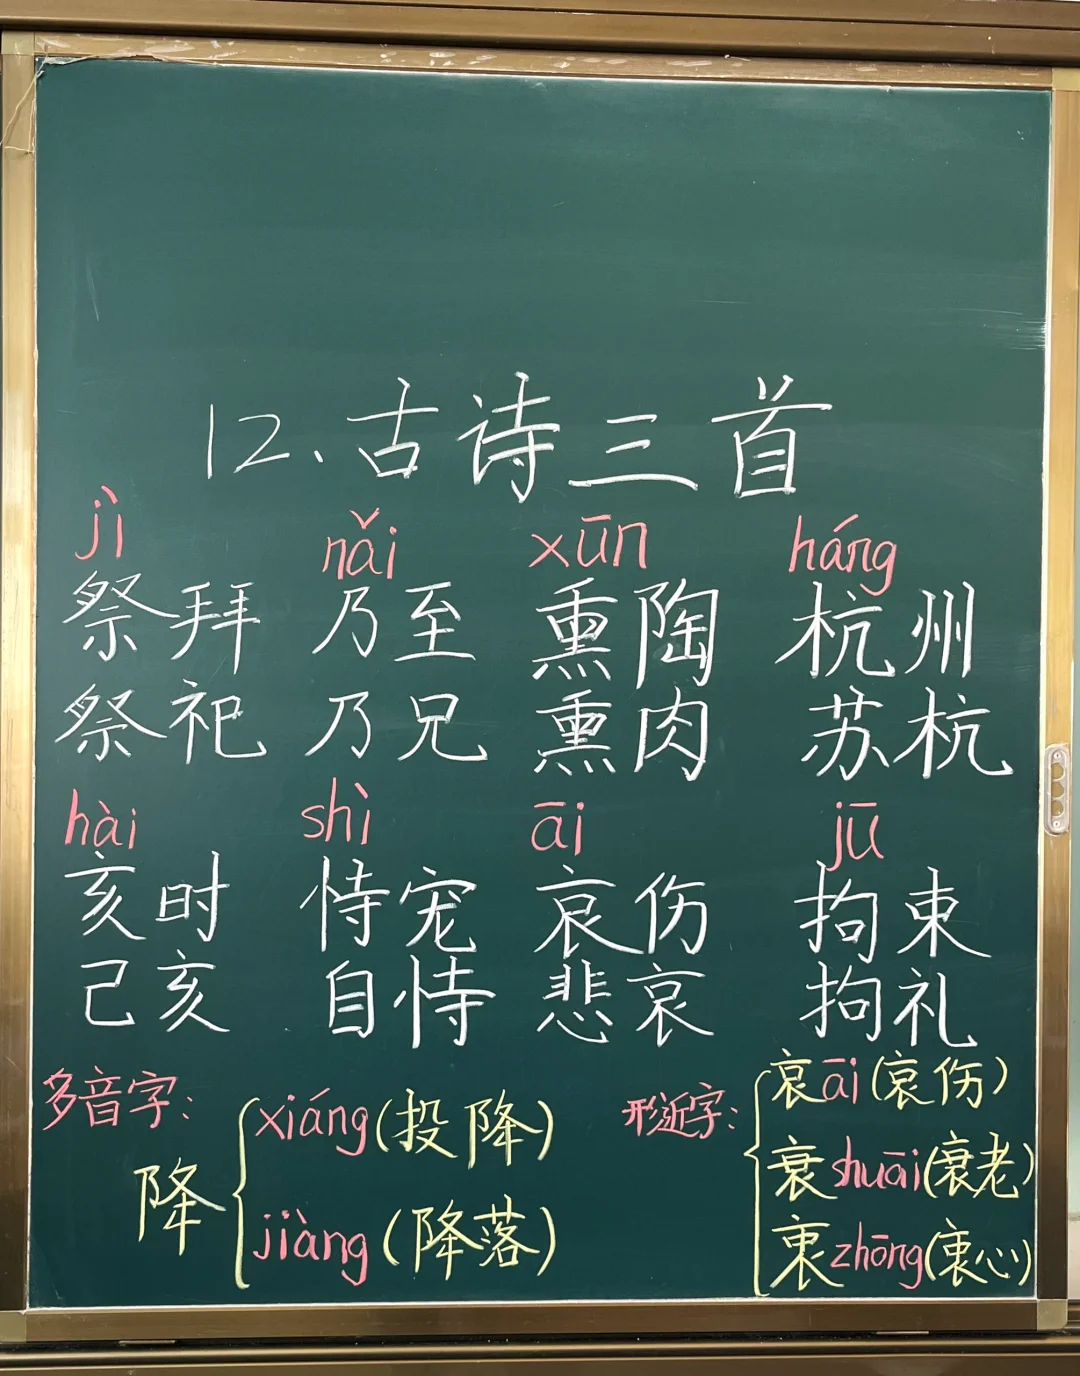 12.古诗三首
jì nǎi xūn háng
祭拜 乃至 熏陶 杭州
祭祀 乃兄 熏肉 苏杭
hài shì āi jū
亥时 恃宠 哀伤 拘束
己亥 自恃 悲哀 拘礼
多音字:
降
xiáng(投降)
jiàng(降落)
形近字:
哀āi(哀伤)
衰shuāi(衰老)
衷zhōng(衷心)